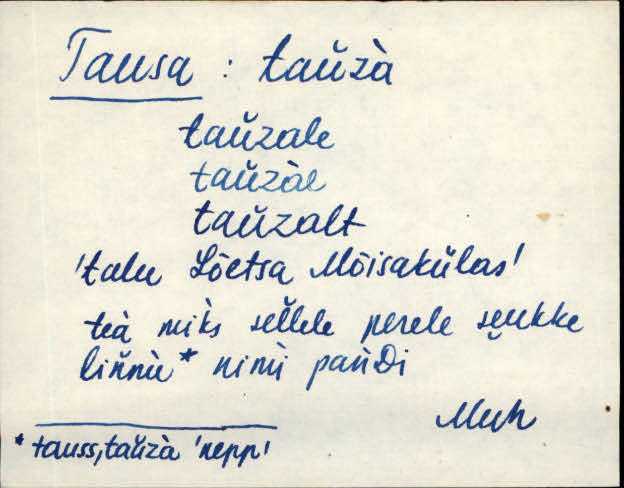 Tausa : taŭzà
taŭzale
taŭzàl
taŭzalt
'talu Lõetsa Mõisakülas'
teà mìks sellele perele sḙukke
liňnù* nimì pańDi
Muh
* tauss, taŭzà 'nepp'